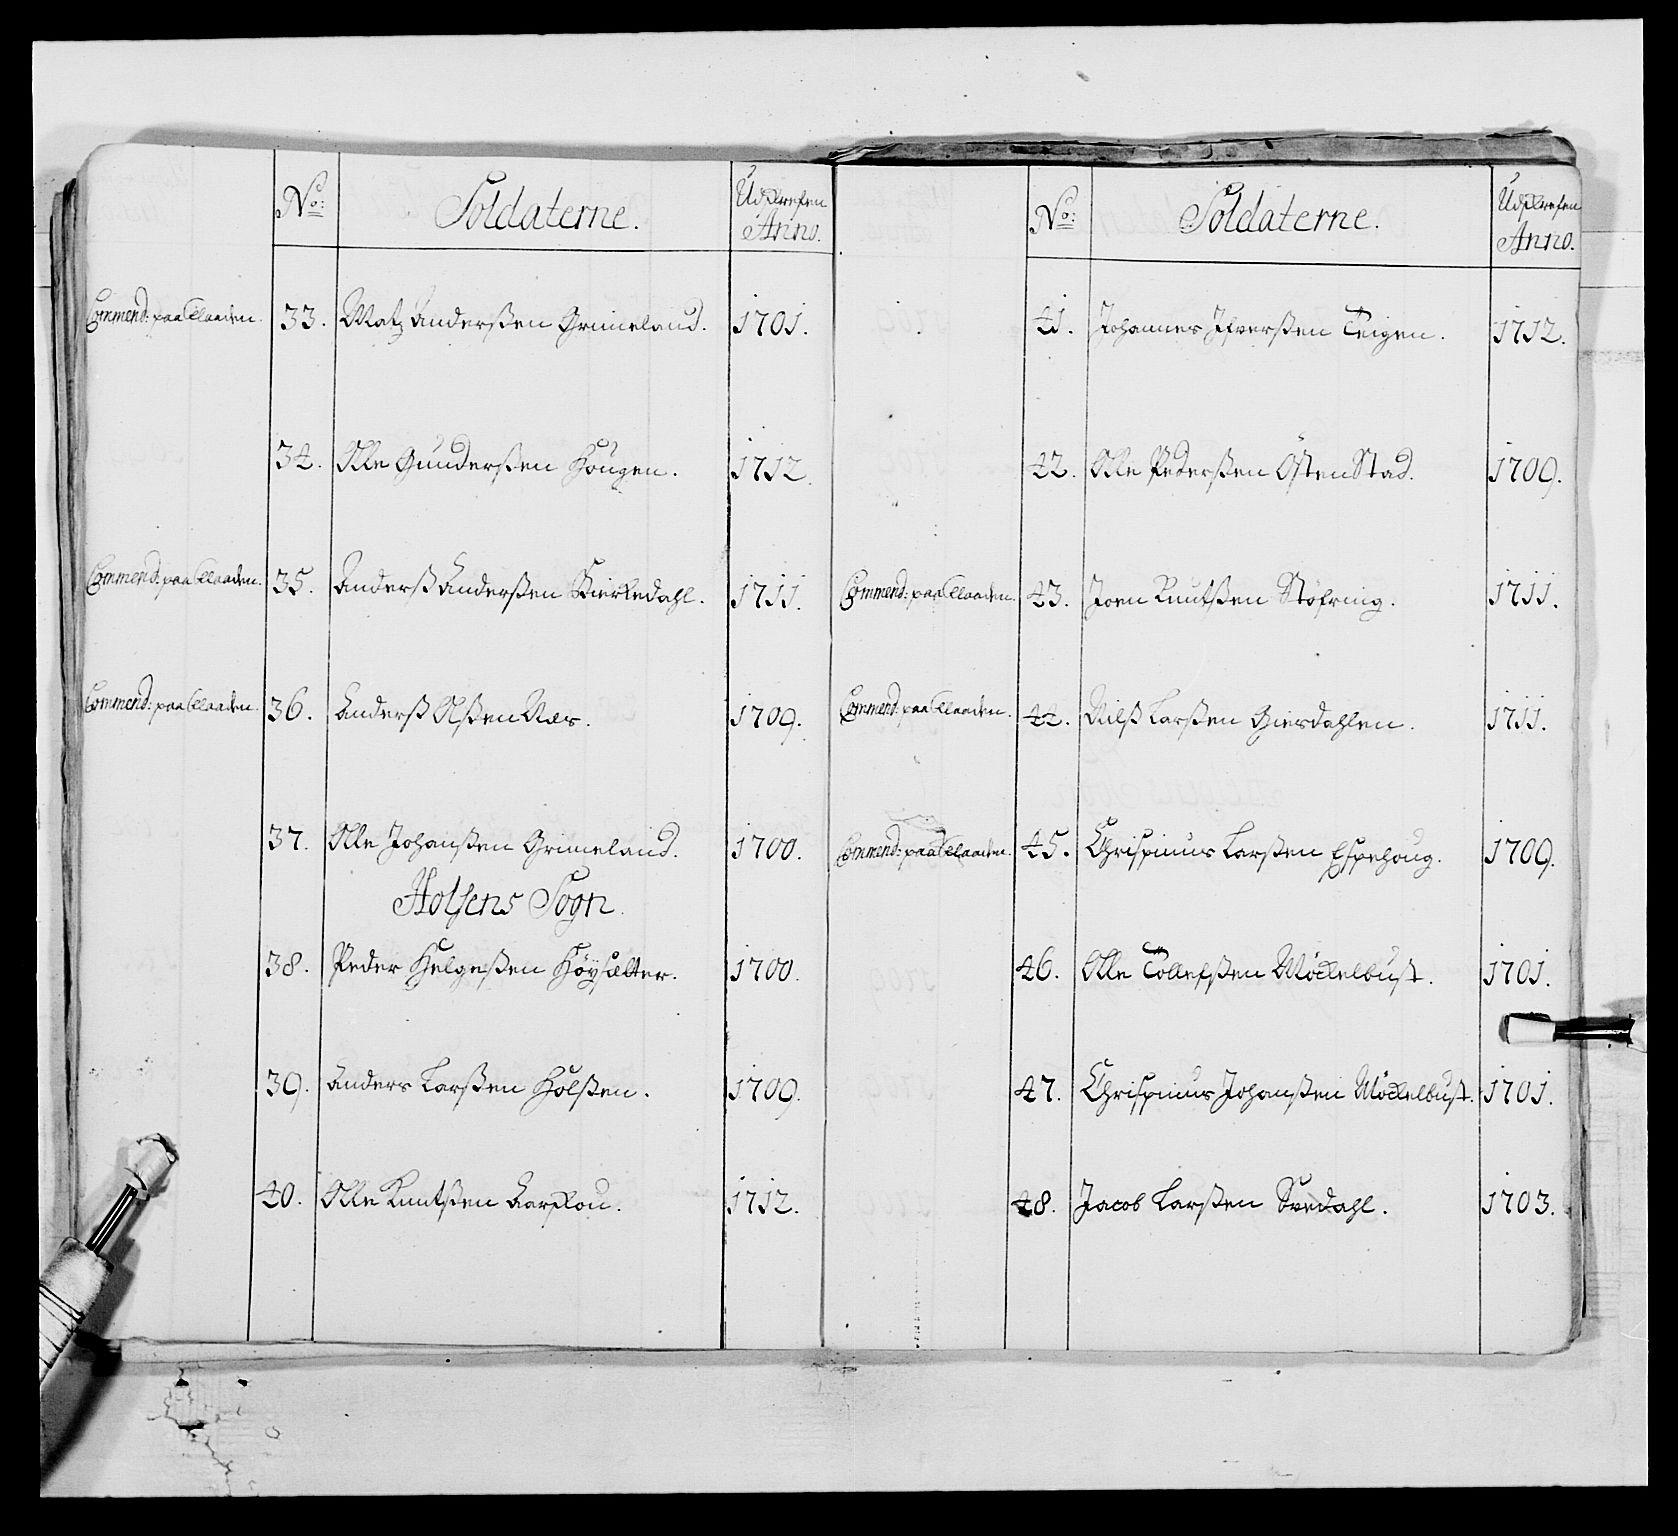 No: Soldaterne. Udskrefen Anno.
Commend: paa Flaaden. 33. Matz Anderßen Grimeland. 1701.
34. Olle Gunderßen Hougen. 1712.
Commend: paa Flaaden. 35. Anderß Anderßen Kirkedahl. 1711.
Commend: paa Flaaden. 36. Anderß Olßen Næs. 1709.
37. Olle Johanßen Grimeland. 1700.
Holsens Sogn.
38. Peder Helgeßen Höysæter. 1700.
39. Anders Larßen Holßen. 1709.
40. Olle Knutßen Aarklou. 1712.
No: Soldaterne. Udskrefen Anno.
41. Johannes Ifverßen Teigen. 1712.
42. Olle Pederßen Östenstad. 1709.
Commend: paa Flaaden. 43. Joen Knutßen Stöfring. 1711.
Commend: paa Flaaden. 44. Nilß Larßen Gierdahlen. 1711.
Commend: paa Flaaden. 45. Chrispinus Larßen Espehoug. 1709.
46. Olle Tollefßen Möckelbust. 1701.
47. Chrispinus Johanßen Möckelbust. 1701.
48. Jacob Larßen Svedahl. 1703.